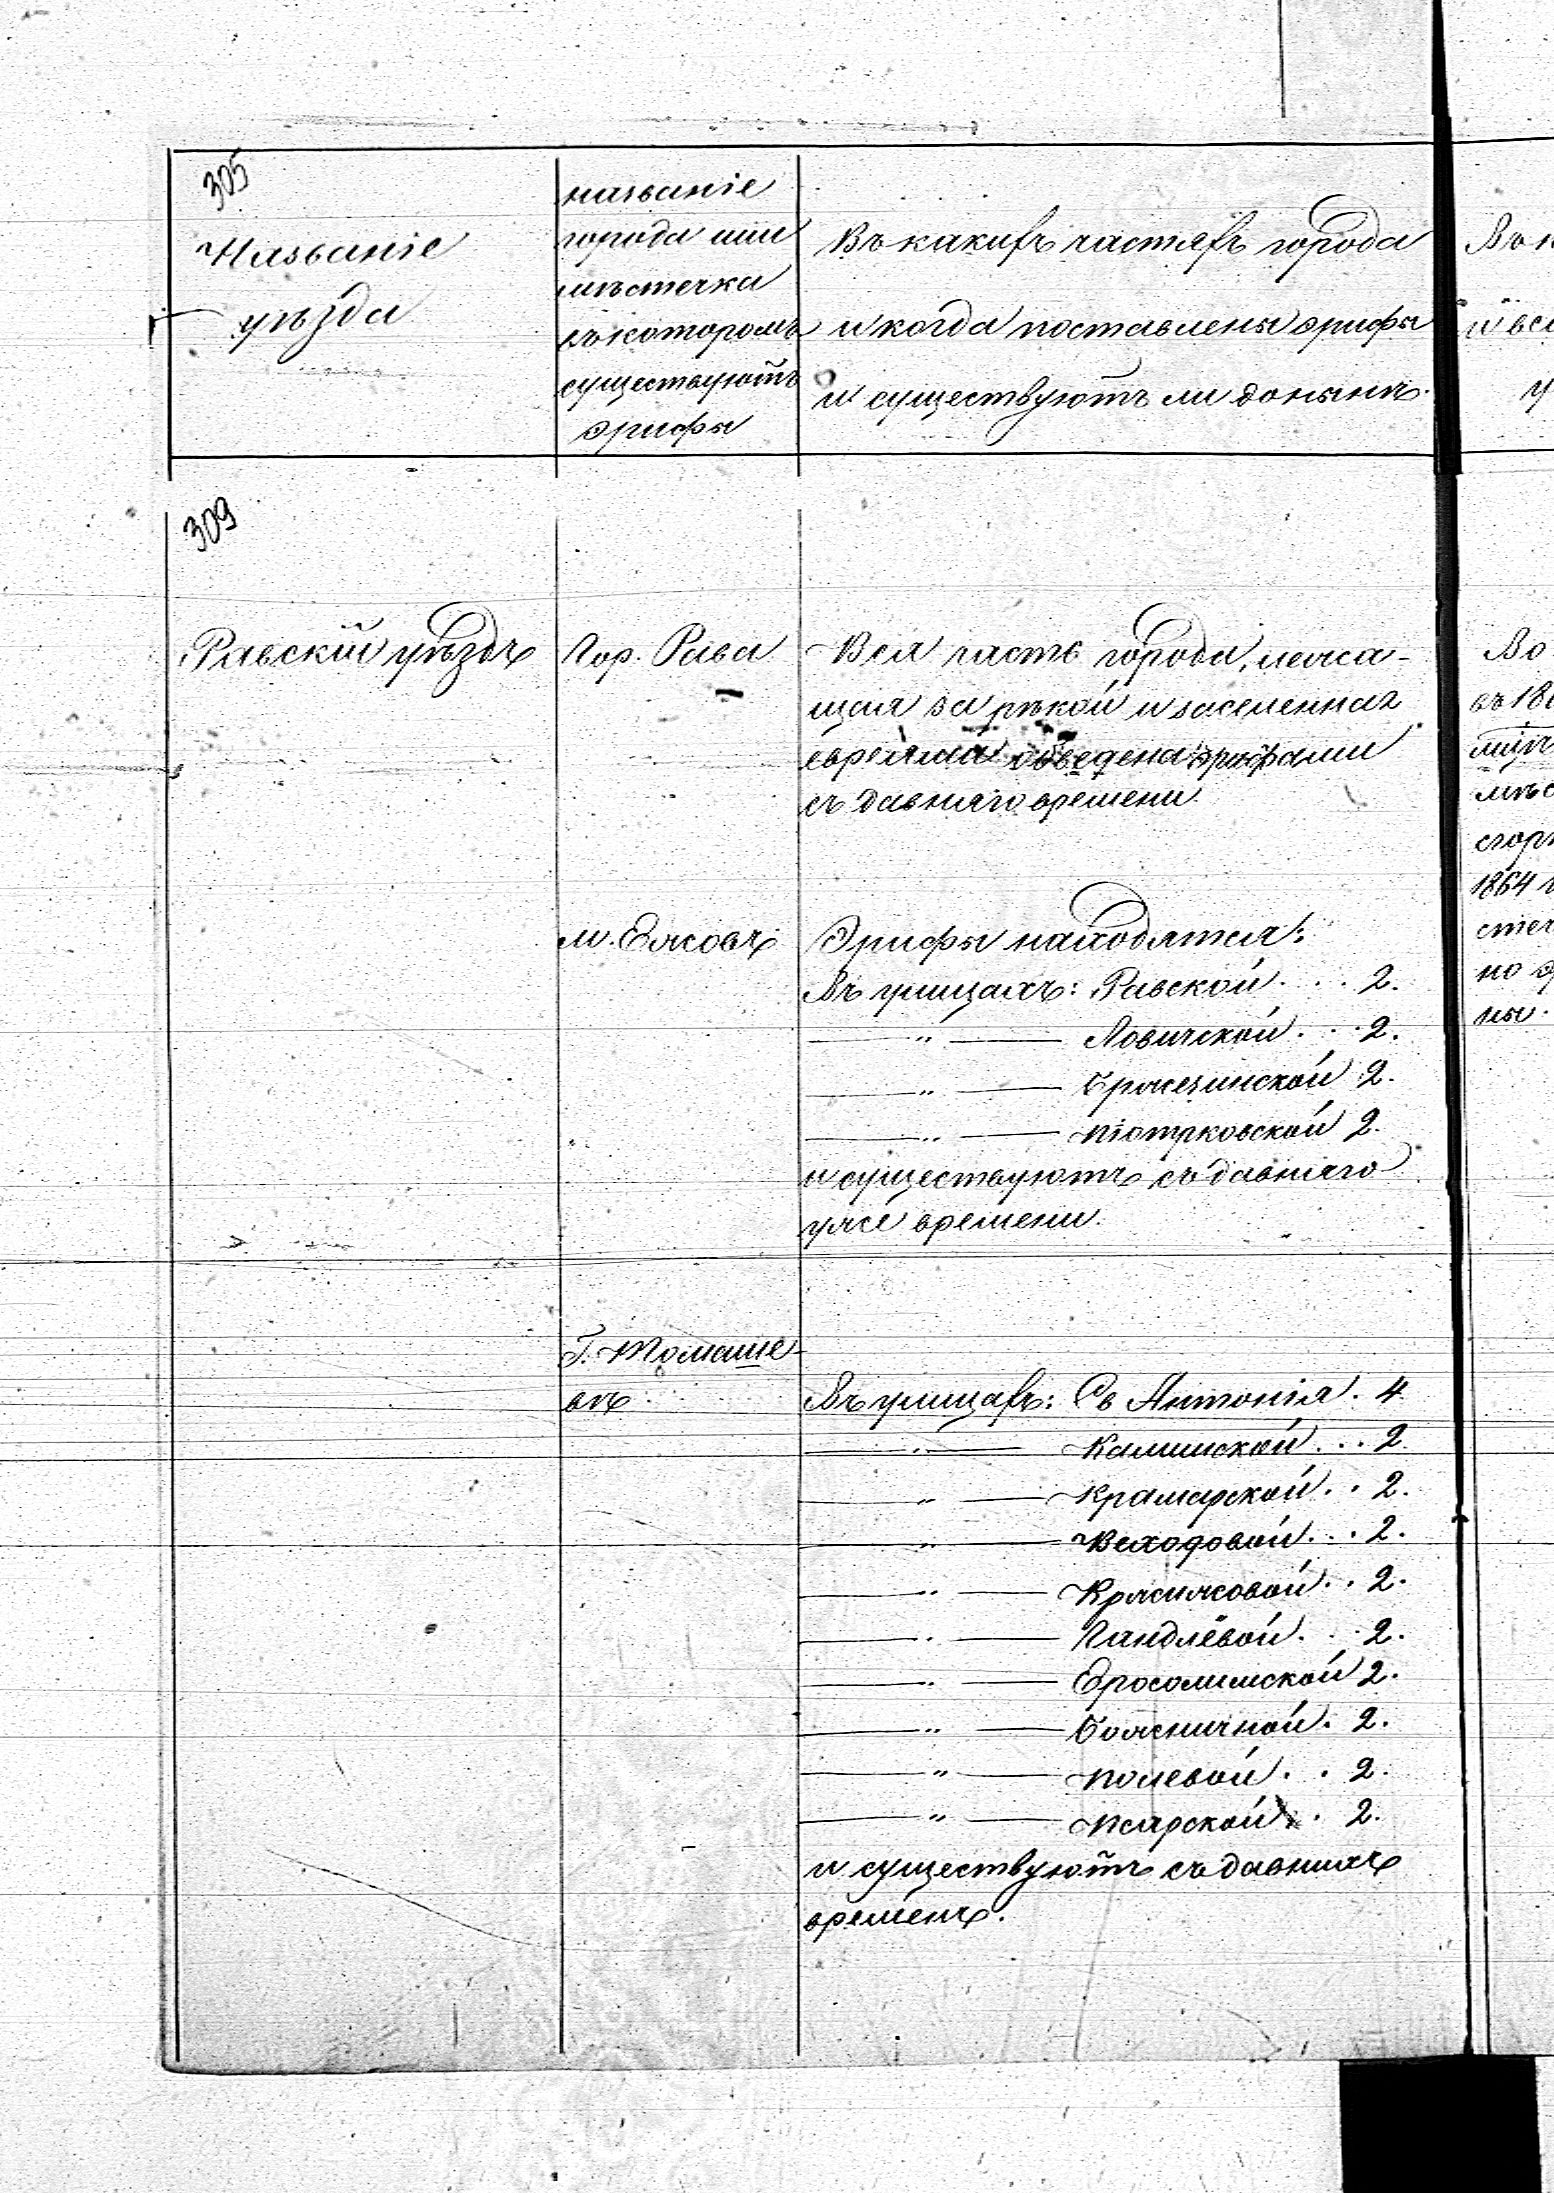 305
Названіе
уѣзда
названіе
города или
мѣстечка
въ которомъ
существуютъ
эрифы
Въ какихъ частяхъ города
и когда поставлены эрифы
и существуютъ ли донынѣ.
309
Равскій уѣздъ
Гор. Рава
Вся часть города, лежа-
щая за рѣкой и заселенная
евреями обведена эрифами
съ давняго времени.
м. Ежовъ
Эрифы находятся:
Въ улицахъ: Равской . . . 2.
" Ловичской . . . 2.
" Бржезинской 2.
" Піотрковской 2.
и существуютъ съ давняго
уже времени.
Г. Томаше-
въ
Въ улицахъ: Св Антонія . 4
" Калишской . . . 2
" Крамарской . . 2.
" Всходовой . . . 2.
" Кржижовой . . 2.
" Гандлёвой . . . 2.
" Ерозолимской 2.
" Божничной . 2.
" Полевой . . 2.
" Псарской . 2.
и существуютъ съ давнихъ
временъ.
Во
въ 18
мѣс
сгор
1864 г
стеч
по э
ны.